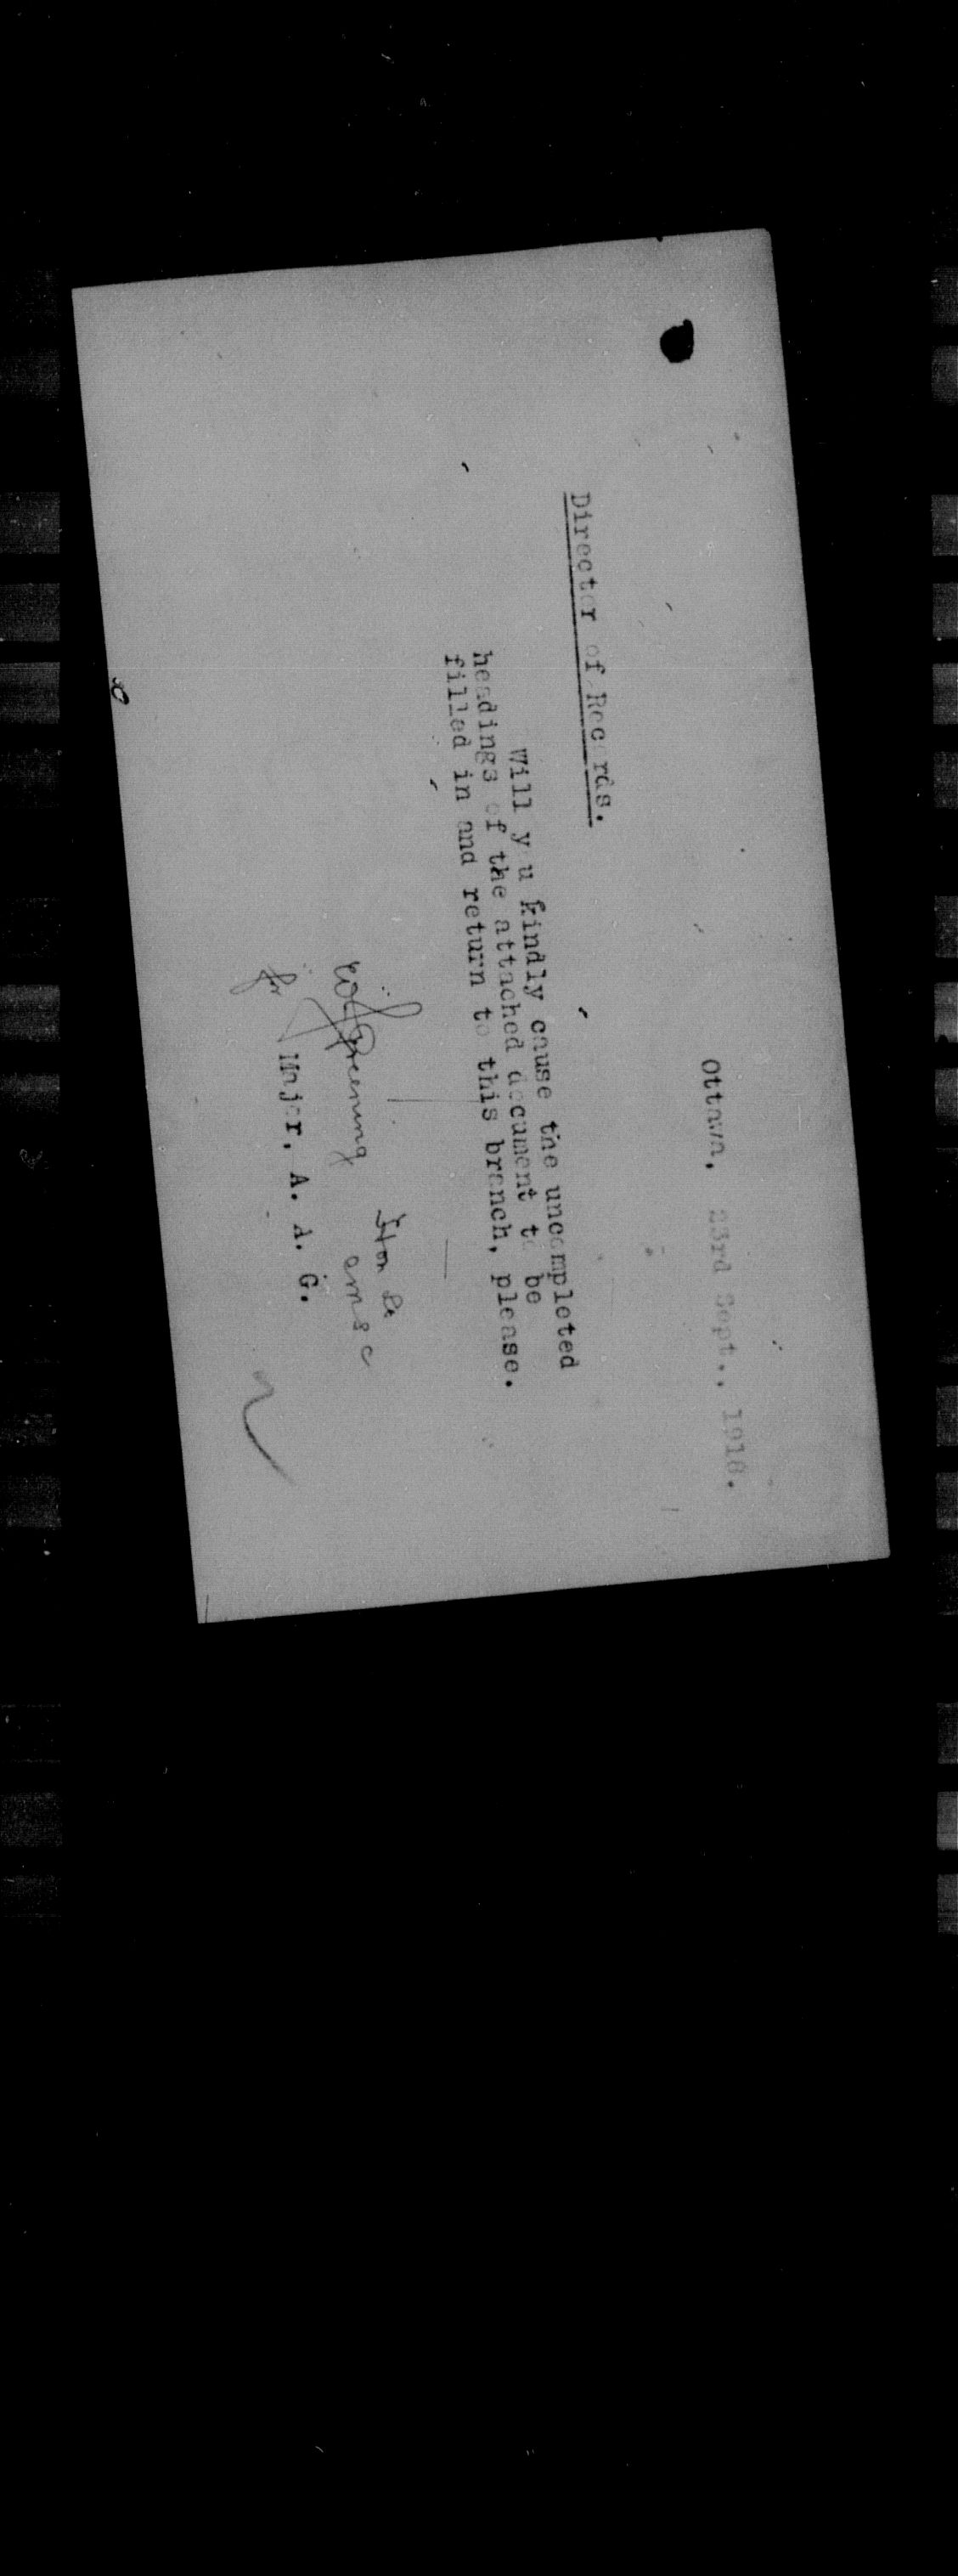 Ottawa, 23rd Sept., 1918.
Director of Records.
Will you kindly cause the uncompleted
headings of the attached document to be
filled in and return to this branch, please.
Greening Hon Lt
for Major, A. A. G.